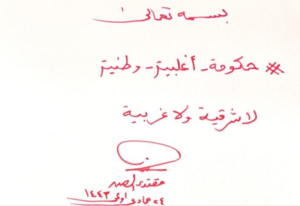 بسمه تعالى
# حكومة - أغلبية - وطنية
لا شرقية ولا غربية
مقتدى الصدر
٢٤ جمادى الأولى ١٤٤٣